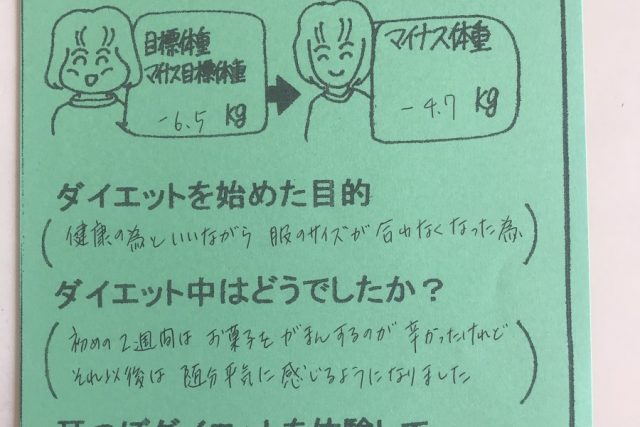 目標体重
マイナス目標体重
-6.5 kg
マイナス体重
-4.7 kg
ダイエットを始めた目的
健康の為といいながら 服のサイズが合わなくなった為、
ダイエット中はどうでしたか？
初めの2週間は お菓子をがまんするのが 辛かったけれど
それ以後は 随分平気に感じるようになりました
耳つぼダイエットを体験して